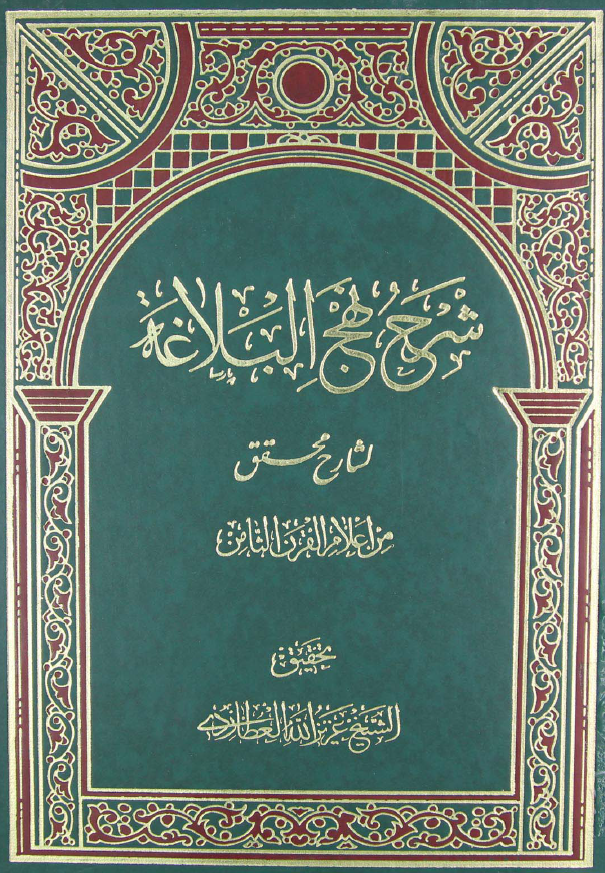 شَرحُ نَهْجُ البَلاغَة
پارسا
لشارح محقق
من اعلام القرن الثامن
تحقيق
الشيخ عزيز الله العطاردي